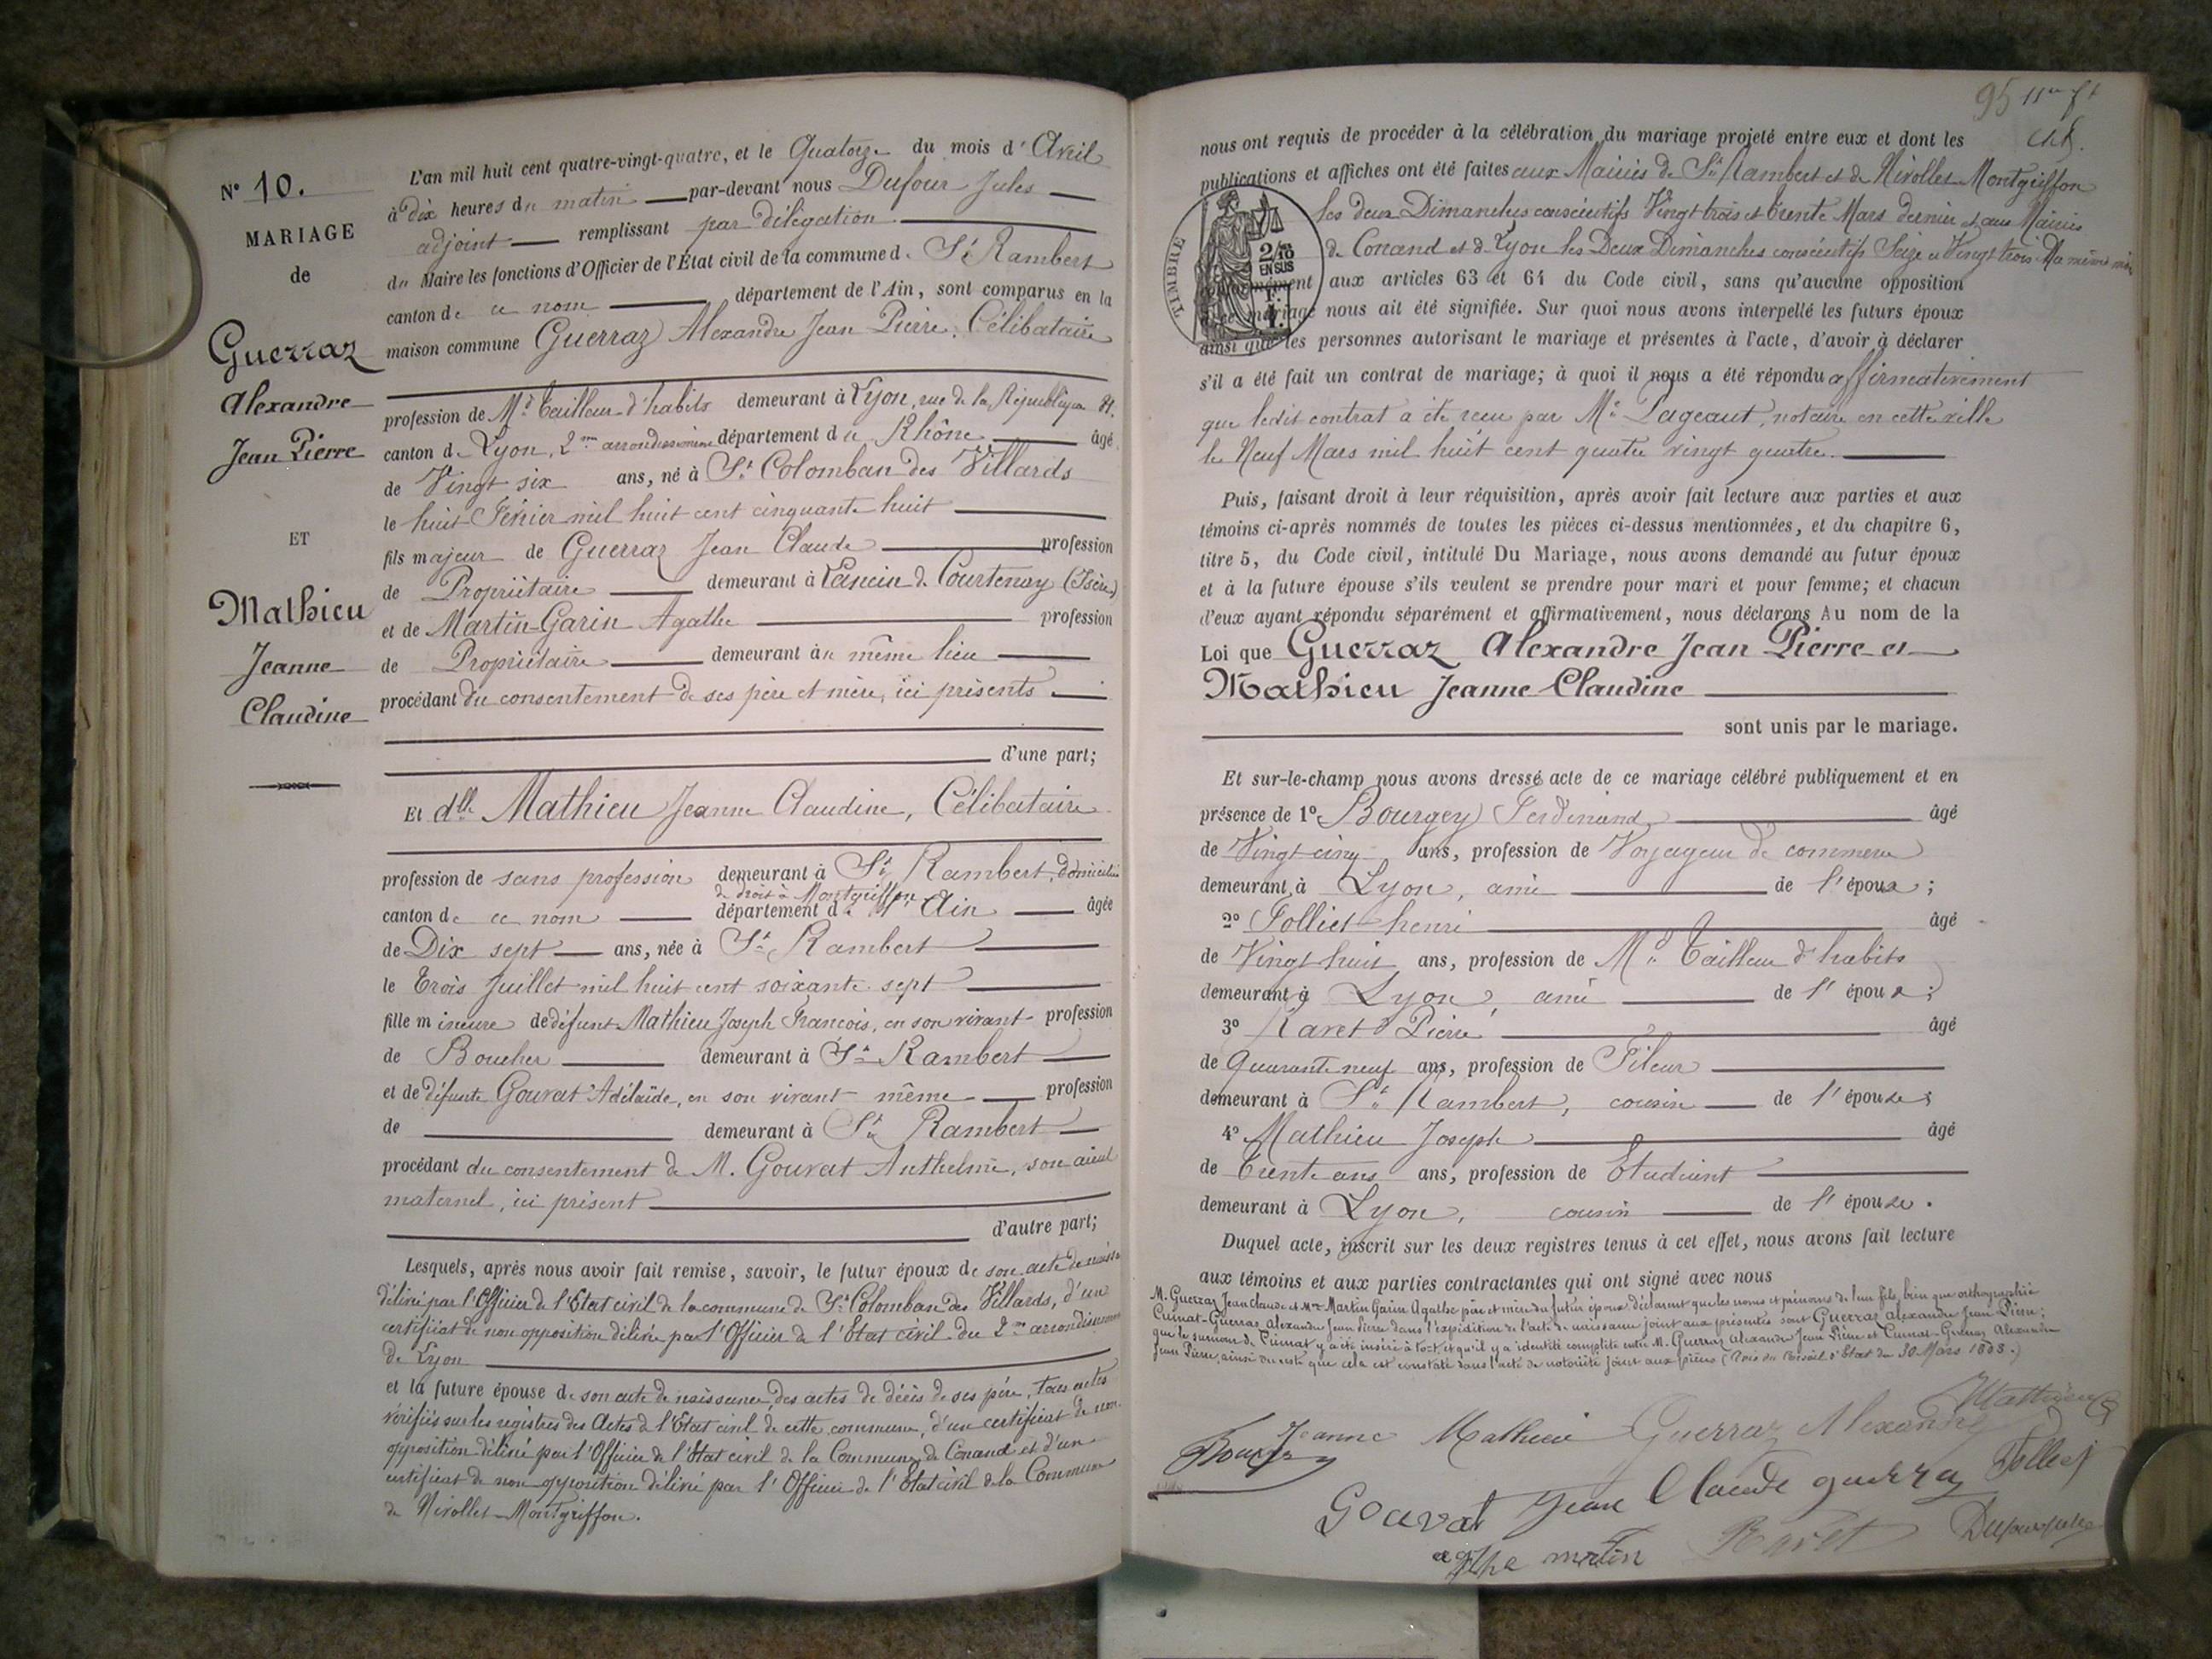 N° 10.
MARIAGE
de
Guerraz
Alexandre
Jean Pierre
ET
Mathieu
Jeanne
Claudine
L'an mil huit cent quatre-vingt-quatre, et le Quatorze du mois d'Avril
à dix heures du matin par-devant nous Dufour Jules
adjoint remplissant par délégation
du Maire les fonctions d'Officier de l'État civil de la commune de St Rambert
canton de ce nom département de l'Ain, sont comparus en la
maison commune Guerraz Alexandre Jean Pierre, Célibataire
profession de Md Tailleur d'habits demeurant à Lyon, rue de la République
canton de Lyon, 2me arrondissement département du Rhône âgé
de Vingt six ans, né à St Colomban des Villards
le huit Février mil huit cent cinquante huit
fils majeur de Guerraz Jean Claude profession
de Propriétaire demeurant à Lancin de Courtenay (Isère)
et de Martin-Garin Agathe profession
de Propriétaire demeurant au même lieu
procédant du consentement de ses père et mère, ici présents
d'une part;
Et dlle Mathieu Jeanne Claudine, Célibataire
profession de sans profession demeurant à St Rambert, domiciliée
de droit à Montgriffon
canton de ce nom département de l'Ain âgée
de Dix sept ans, née à St Rambert
le Trois Juillet mil huit cent soixante sept
fille mineure de défunt Mathieu Joseph François, en son vivant profession
de Boucher demeurant à St Rambert
et de défunte Gouvat Adélaïde, en son vivant même profession
de demeurant à St Rambert
procédant du consentement de M. Gouvat Anthelme, son aïeul
maternel, ici présent
d'autre part;
Lesquels, après nous avoir fait remise, savoir, le futur époux de son acte de naissance
délivré par l'Officier de l'Etat civil de la commune de St Colomban des Villards, d'un
certificat de non opposition délivré par l'Officier de l'Etat civil du 2me arrondissement
de Lyon
et la future épouse de son acte de naissance, des actes de décès de ses père, tous actes
vérifiés sur les registres des Actes de l'Etat civil de cette commune, d'un certificat de non
opposition délivré par l'Officier de l'Etat civil de la Commune de Conand et d'un
certificat de non opposition délivré par l'Officier de l'Etat civil de la Commune
de Nivollet-Montgriffon.
95
nous ont requis de procéder à la célébration du mariage projeté entre eux et dont les
publications et affiches ont été faites aux Mairies de St Rambert et de Nivollet Montgriffon
les deux Dimanches consécutifs Vingt trois et trente Mars dernier et aux Mairies
de Conand et de Lyon les Deux Dimanches consécutifs Seize et Vingt trois du même mois
TIMBRE
2/10
EN SUS
conformément aux articles 63 et 64 du Code civil, sans qu'aucune opposition
à ce mariage nous ait été signifiée. Sur quoi nous avons interpellé les futurs époux
ainsi que les personnes autorisant le mariage et présentes à l'acte, d'avoir à déclarer
s'il a été fait un contrat de mariage; à quoi il nous a été répondu affirmativement
que ledit contrat a été reçu par Me Pageaut, notaire en cette ville
le Neuf Mars mil huit cent quatre vingt quatre.
Puis, faisant droit à leur réquisition, après avoir fait lecture aux parties et aux
témoins ci-après nommés de toutes les pièces ci-dessus mentionnées, et du chapitre 6,
titre 5, du Code civil, intitulé Du Mariage, nous avons demandé au futur époux
et à la future épouse s'ils veulent se prendre pour mari et pour femme; et chacun
d'eux ayant répondu séparément et affirmativement, nous déclarons Au nom de la
Loi que Guerraz Alexandre Jean Pierre et
Mathieu Jeanne Claudine
sont unis par le mariage.
Et sur-le-champ nous avons dressé acte de ce mariage célébré publiquement et en
présence de 1° Bourgey Ferdinand âgé
de Vingt cinq ans, profession de Voyageur de commerce
demeurant à Lyon, ami de l'époux;
2° Folliet henri âgé
de Vingt huit ans, profession de Md Tailleur d'habits
demeurant à Lyon, ami de l'époux;
3° Ravet Pierre âgé
de Quarante neuf ans, profession de Fileur
demeurant à St Rambert, cousin de l'épouse;
4° Mathieu Joseph âgé
de Trente ans ans, profession de Etudiant
demeurant à Lyon, cousin de l'épouse.
Duquel acte, inscrit sur les deux registres tenus à cet effet, nous avons fait lecture
aux témoins et aux parties contractantes qui ont signé avec nous
M. Guerraz Jean Claude et Mme Martin Garin Agathe père et mère du futur époux déclarent que les noms et prénoms de leur fils, bien que orthographié
Cuinat-Guerras Alexandre Jean Pierre dans l'expédition de l'acte de naissance joint aux présentes sont Guerraz Alexandre Jean Pierre;
que le surnom de Cuinat y a été inséré à tort, et qu'il y a identité complète entre M. Guerraz Alexandre Jean Pierre et Cuinat-Guerras Alexandre
Jean Pierre, ainsi du reste que cela est constaté dans l'acte de notoriété joint aux pièces (Avis du Conseil d'Etat du 30 Mars 1808.)
Mathieu
Jeanne Mathieu Guerraz Alexandre
Bourgey
Folliet
Gouvat Jean Claude guerraz
agathe martin Ravet Dufour Jules